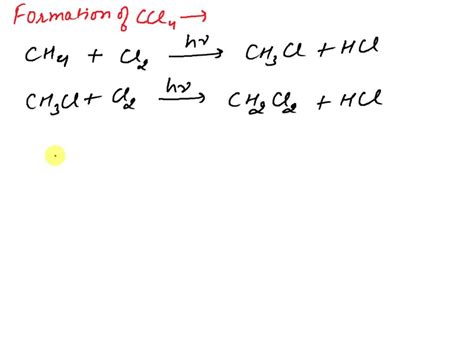 Formation of CCl₄ →
CH₄ + Cl₂ —hν→ CH₃Cl + HCl
CH₃Cl + Cl₂ —hν→ CH₂Cl₂ + HCl